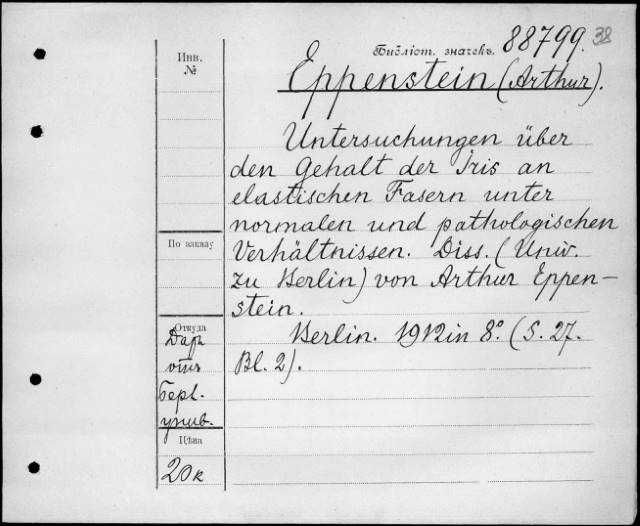 Инв.
№
Библіот. значекъ. 88799. 38
Eppenstein (Arthur).
Untersuchungen über
den Gehalt der Iris an
elastischen Fasern unter
normalen und pathologischen
По заказу
Verhältnissen. Diss. (Univ.
zu Berlin) von Arthur Eppen-
stein.
Откуда
Даръ
отъ
Берл.
унив.
Berlin. 1912 in 8.° (S. 27.
Bl. 2).
Цѣна
20 к